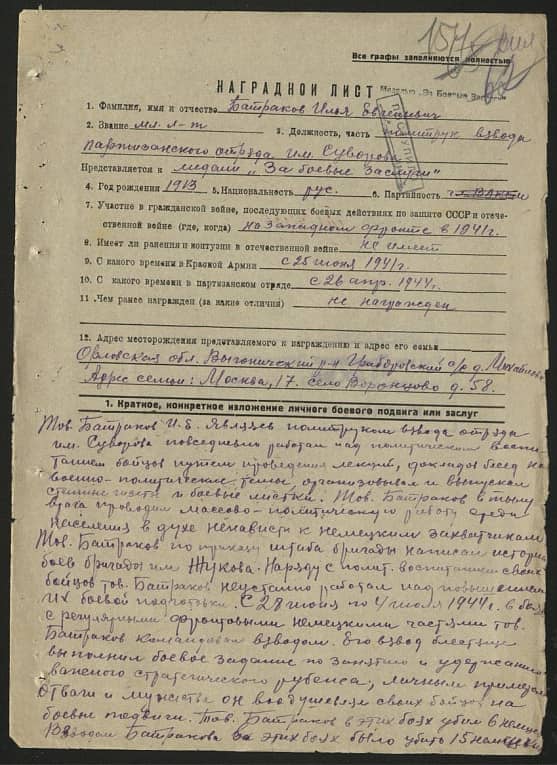 157
Все графы заполняются полностью
НАГРАДНОЙ ЛИСТ Медалью „За Боевые Заслуги
1. Фамилия, имя и отчество Батраков Илья
2. Звание мл. л-т 3. Должность, часть политрук взвода
партизанского отряда им. Суворова
Представляется к медали „За боевые заслуги"
4. Год рождения 1913 5. Национальность рус. 6. Партийность
7. Участие в гражданской войне, последующих боевых действиях по защите СССР и отече-
ственной войне (где, когда) на Западном фронте в 1941г.
8. Имеет ли ранения и контузии в отечественной войне не имеет
9. С какого времени в Красной Армии с 25 июня 1941г.
10. С какого времени в партизанском отряде с 26 апр. 1944г.
11. Чем ранее награжден (за какие отличия) не награжден
12. Адрес месторождения представляемого к награждению и адрес его семьи
Орловская обл. Выгонический р-н с/с д.
Адрес семьи: Москва, 17. село Воронцово д. 58.
1. Краткое, конкретное изложение личного боевого подвига или заслуг
Тов. Батраков И.Е. Являясь политруком взвода отряда
им. Суворова повседневно работал над политическим воспи-
танием бойцов путем проведения лекций, докладов бесед на
военно-политические темы, организовывал и выпускал
стенные газеты и боевые листки. Тов. Батраков в тылу
врага проводил массово-политическую работу среди
населения в духе ненависти к немецким захватчикам
Тов. Батраков по приказу штаба бригады написал историю
боев бригады им Жукова. Наряду с полит. воспитанием своих
бойцов тов. Батраков неустанно работал над повышением
их боевой подготовки. С 28 июня по 4 июля 1944г. в боях
с регулярными фронтовыми немецкими частями тов.
Батраков командовал взводом. Его взвод блестяще
выполнил боевое задание по занятию и удержанию
важного стратегического рубежа, личным примером
Отваги и мужества он воодушевлял своих бойцов на
боевые подвиги. Тов. Батраков в этих боях убил 6 немцев
Взводом Батракова за этих боях было убить 15 немцев